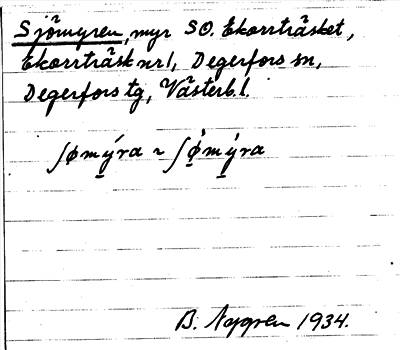 Sjömyren, myr SO. Ekorrträsket,
Ekorrträsk nr 1, Degerfors sn,
Degerfors tg, Västerb. l.
ʃømý̱ra ~ ʃø̱̀mỳ̱ra
B. Nygren 1934.